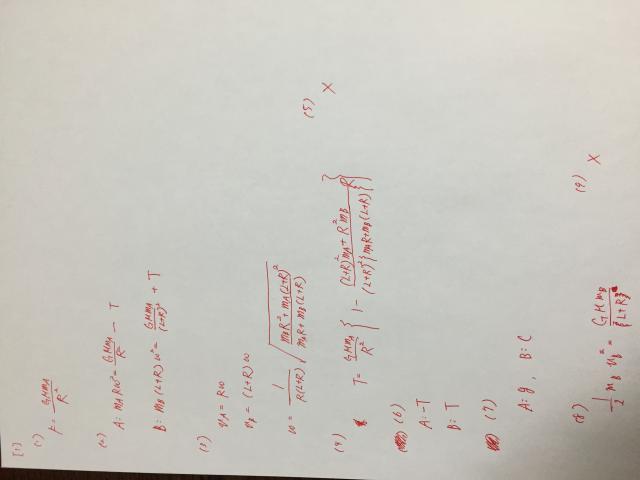 [1]
(1)
F = GMmA/R²
(2)
A: mARω² = GMmA/R² − T
B: mB(L+R)ω² = GMmB/(L+R)² + T
(3)
vA = Rω
vB = (L+R)ω
ω = 1/(R(L+R)) √((mBR² + mA(L+R)²)/(mAR + mB(L+R)))
(4)
T = GMmA/R² { 1 − ((L+R)²mA + R²mB)R/((L+R)²{mAR + mB(L+R)}) }
(5)
X
(6)
A: −T
B: T
(7)
A: g, B: C
(8)
½ mB vB² = GMmB/(L+R)
(9)
X